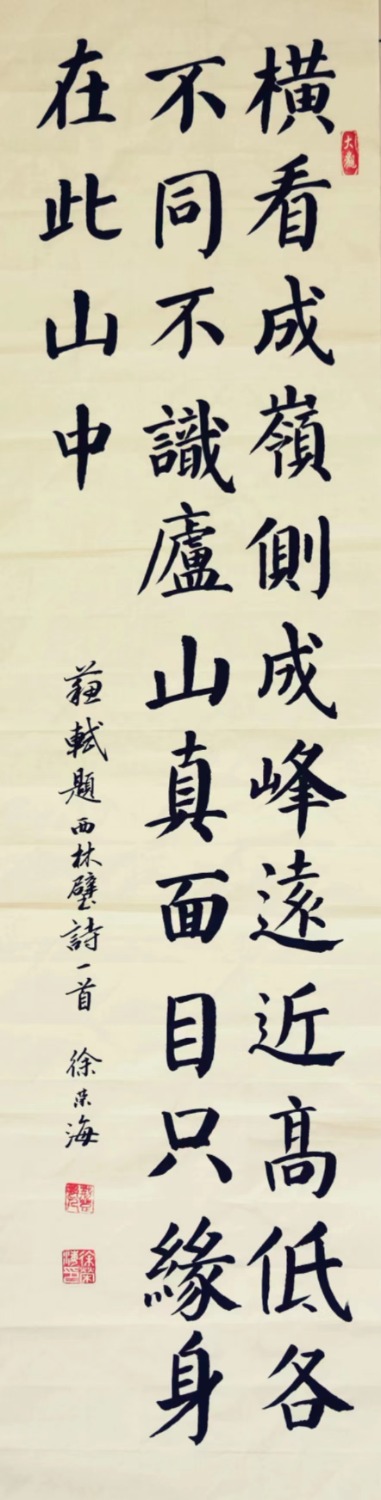 橫看成嶺側成峰遠近高低各
不同不識廬山真面目只緣身
在此山中
蘇軾題西林壁詩一首 徐荣海
大觀